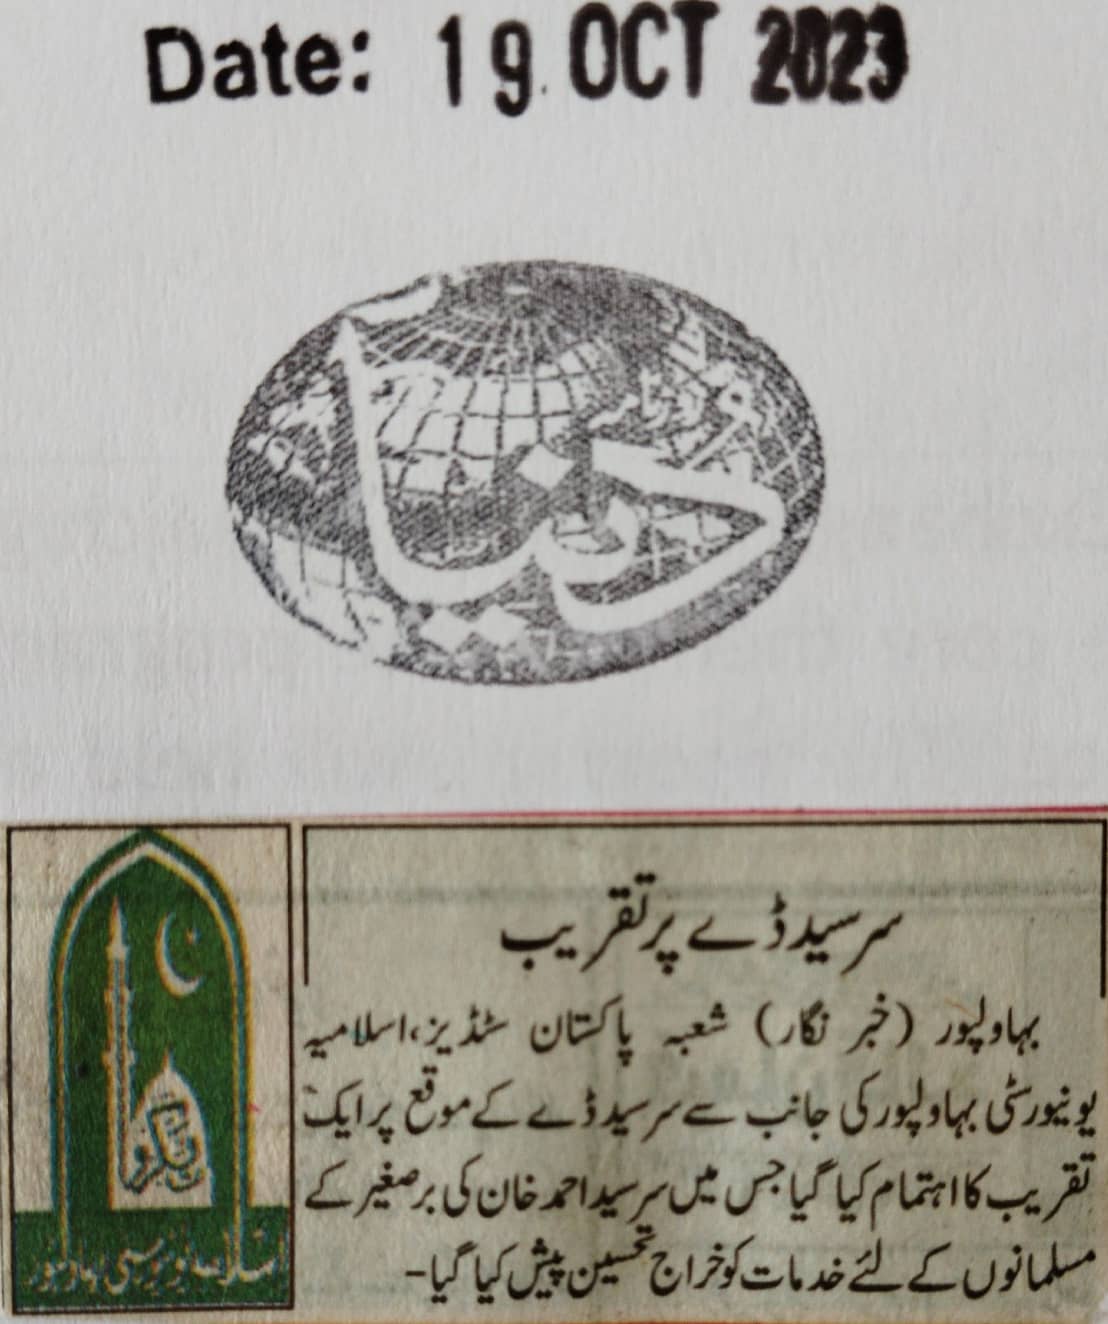 Date: 19 OCT 2023
روزنامہ
دنیا
سرسید ڈے پر تقریب
بہاولپور (خبر نگار) شعبہ پاکستان سٹڈیز،اسلامیہ
یونیورسٹی بہاولپور کی جانب سے سرسید ڈے کے موقع پر ایک
تقریب کا اہتمام کیا گیا جس میں سرسید احمد خان کی برصغیر کے
مسلمانوں کے لئے خدمات کو خراج تحسین پیش کیا گیا-
اسلامیہ یونیورسٹی بہاولپور